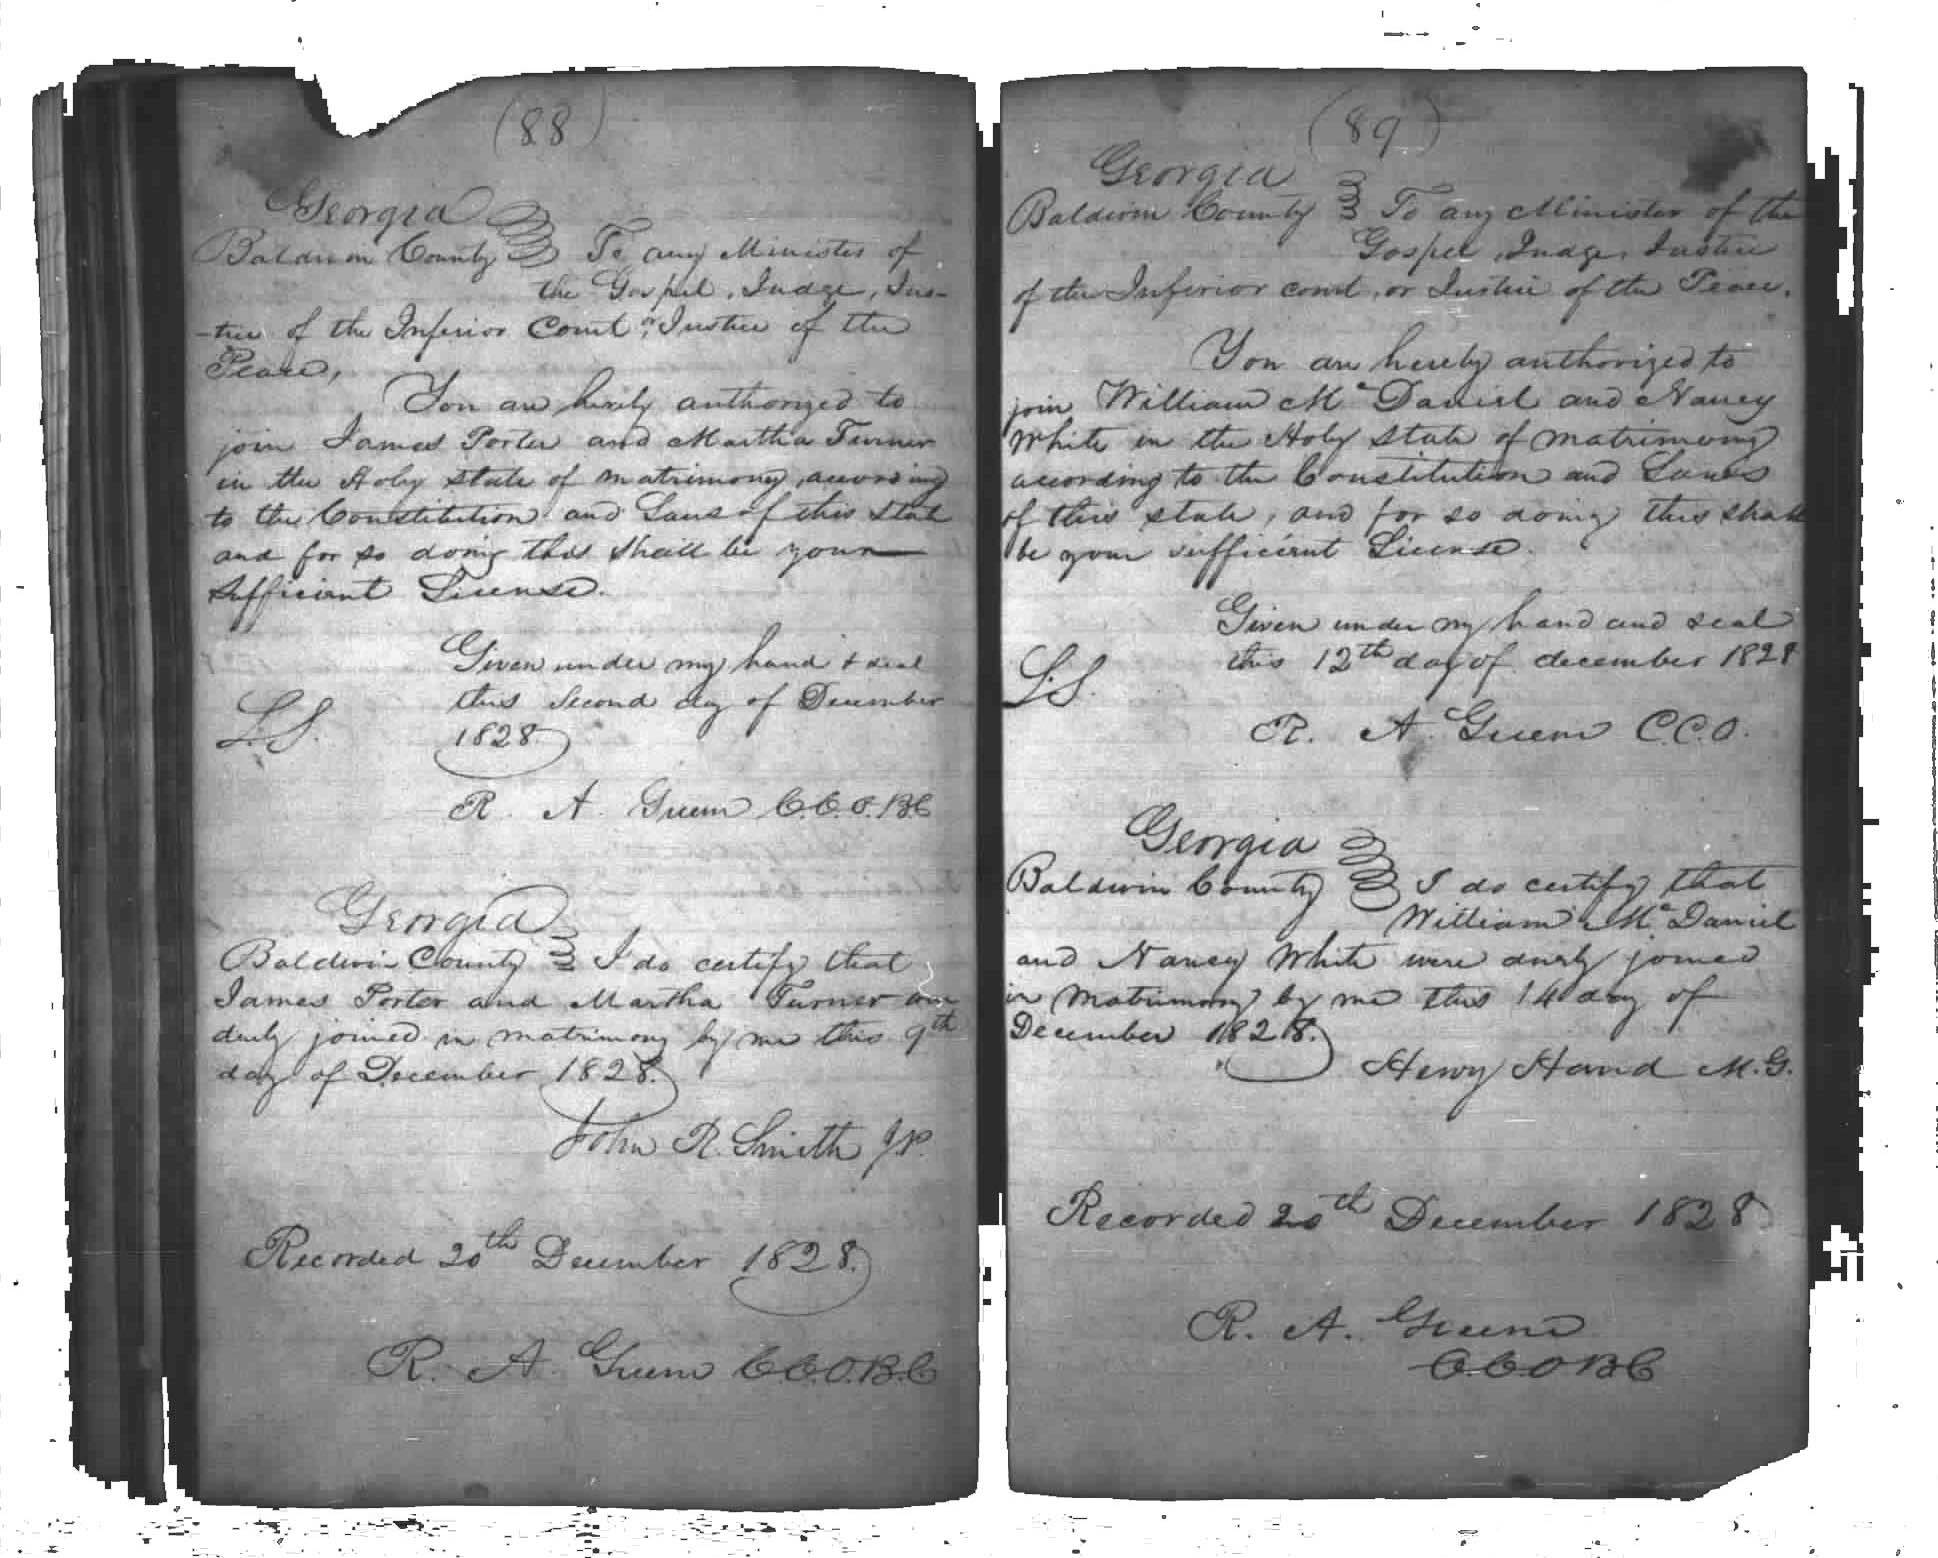 (88)
Georgia
Baldwin County To any Minister of
the Gospel, Judge, Jus-
-tice of the Inferior Court, or Justice of the
Peace,
You are hereby authorized to
join James Porter and Martha Turner
in the Holy state of matrimony, according
to the Constitution and Laws of this State
and for so doing this shall be your
sufficient License.
Given under my hand & seal
this Second day of December
L.S. 1828.
R. A. Greene C.C.O.B.C
Georgia
Baldwin County I do certify that
James Porter and Martha Turner were
duly joined in matrimony by me this 9th
day of December 1828.
John R. Smith J.P.
Recorded 20th December 1828.
R. A. Greene C.C.O.B.C
(89)
Georgia
Baldwin County To any Minister of the
Gospel, Judge, Justice
of the Inferior court, or Justice of the Peace.
You are hereby authorized to
join William Mc Daniel and Nancy
White in the Holy state of matrimony
according to the Constitution and Laws
of this state, and for so doing this shall
be your sufficient License.
Given under my hand and seal
L.S. this 12th day of december 1828
R. A. Greene C.C.O.
Georgia
Baldwin County I do certify that
William Mc Daniel
and Nancy White were duly joined
in Matrimony by me this 14 day of
December 1828.
Henry Hand M.G.
Recorded 20th December 1828
R. A. Greene
C.C.O.B.C